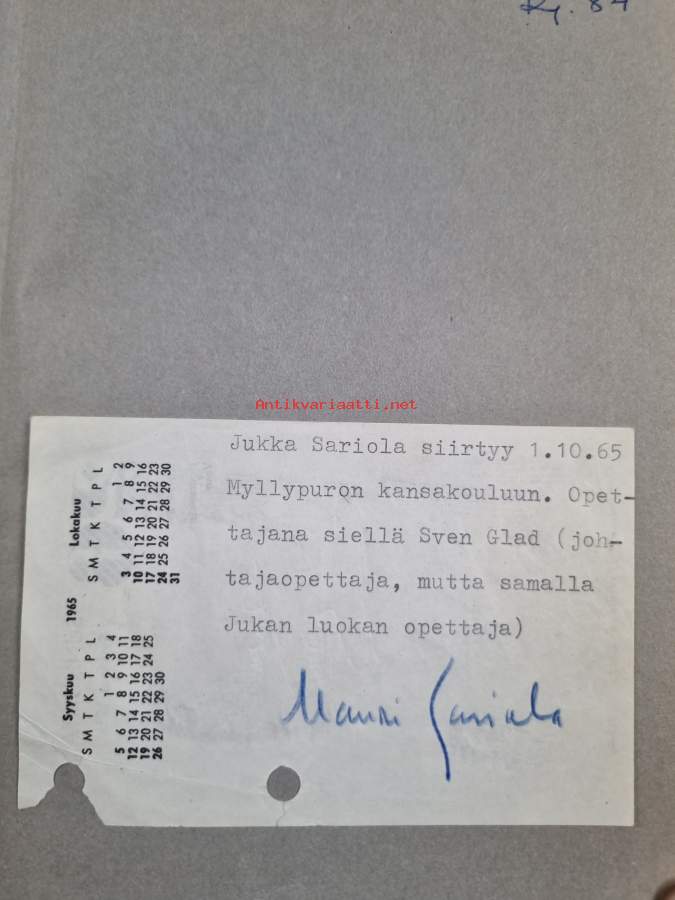 Antikvariaatti.net
Jukka Sariola siirtyy 1.10.65
Myllypuron kansakouluun. Opet-
tajana siellä Sven Glad (joh-
tajaopettaja, mutta samalla
Jukan luokan opettaja)
Mauri Sariola
Syyskuu 1965 Lokakuu
S M T K T P L
1 2 3 4
5 6 7 8 9 10 11
12 13 14 15 16 17 18
19 20 21 22 23 24 25
26 27 28 29 30
S M T K T P L
1 2
3 4 5 6 7 8 9
10 11 12 13 14 15 16
17 18 19 20 21 22 23
24 25 26 27 28 29 30
31